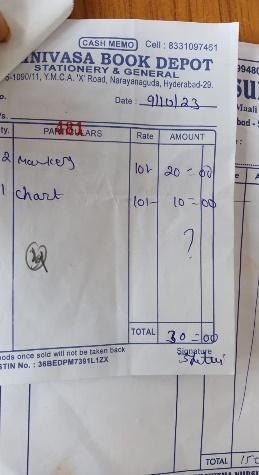 CASH MEMO Cell : 8331097461
NIVASA BOOK DEPOT
STATIONERY & GENERAL
5-1090/11, Y.M.C.A. 'X' Road, Narayanaguda, Hyderabad-29.
o. Date : 9/10/23
/s.
ty. PARTICULARS Rate AMOUNT
481
2 Markers 10/- 20=00
1 chart 10/- 10=00
TOTAL 30=00
oods once sold will not be taken back
Signature
STIN No. : 36BEDPM7391L1ZX
99480
su
Maali
bad - 5
TOTAL 15